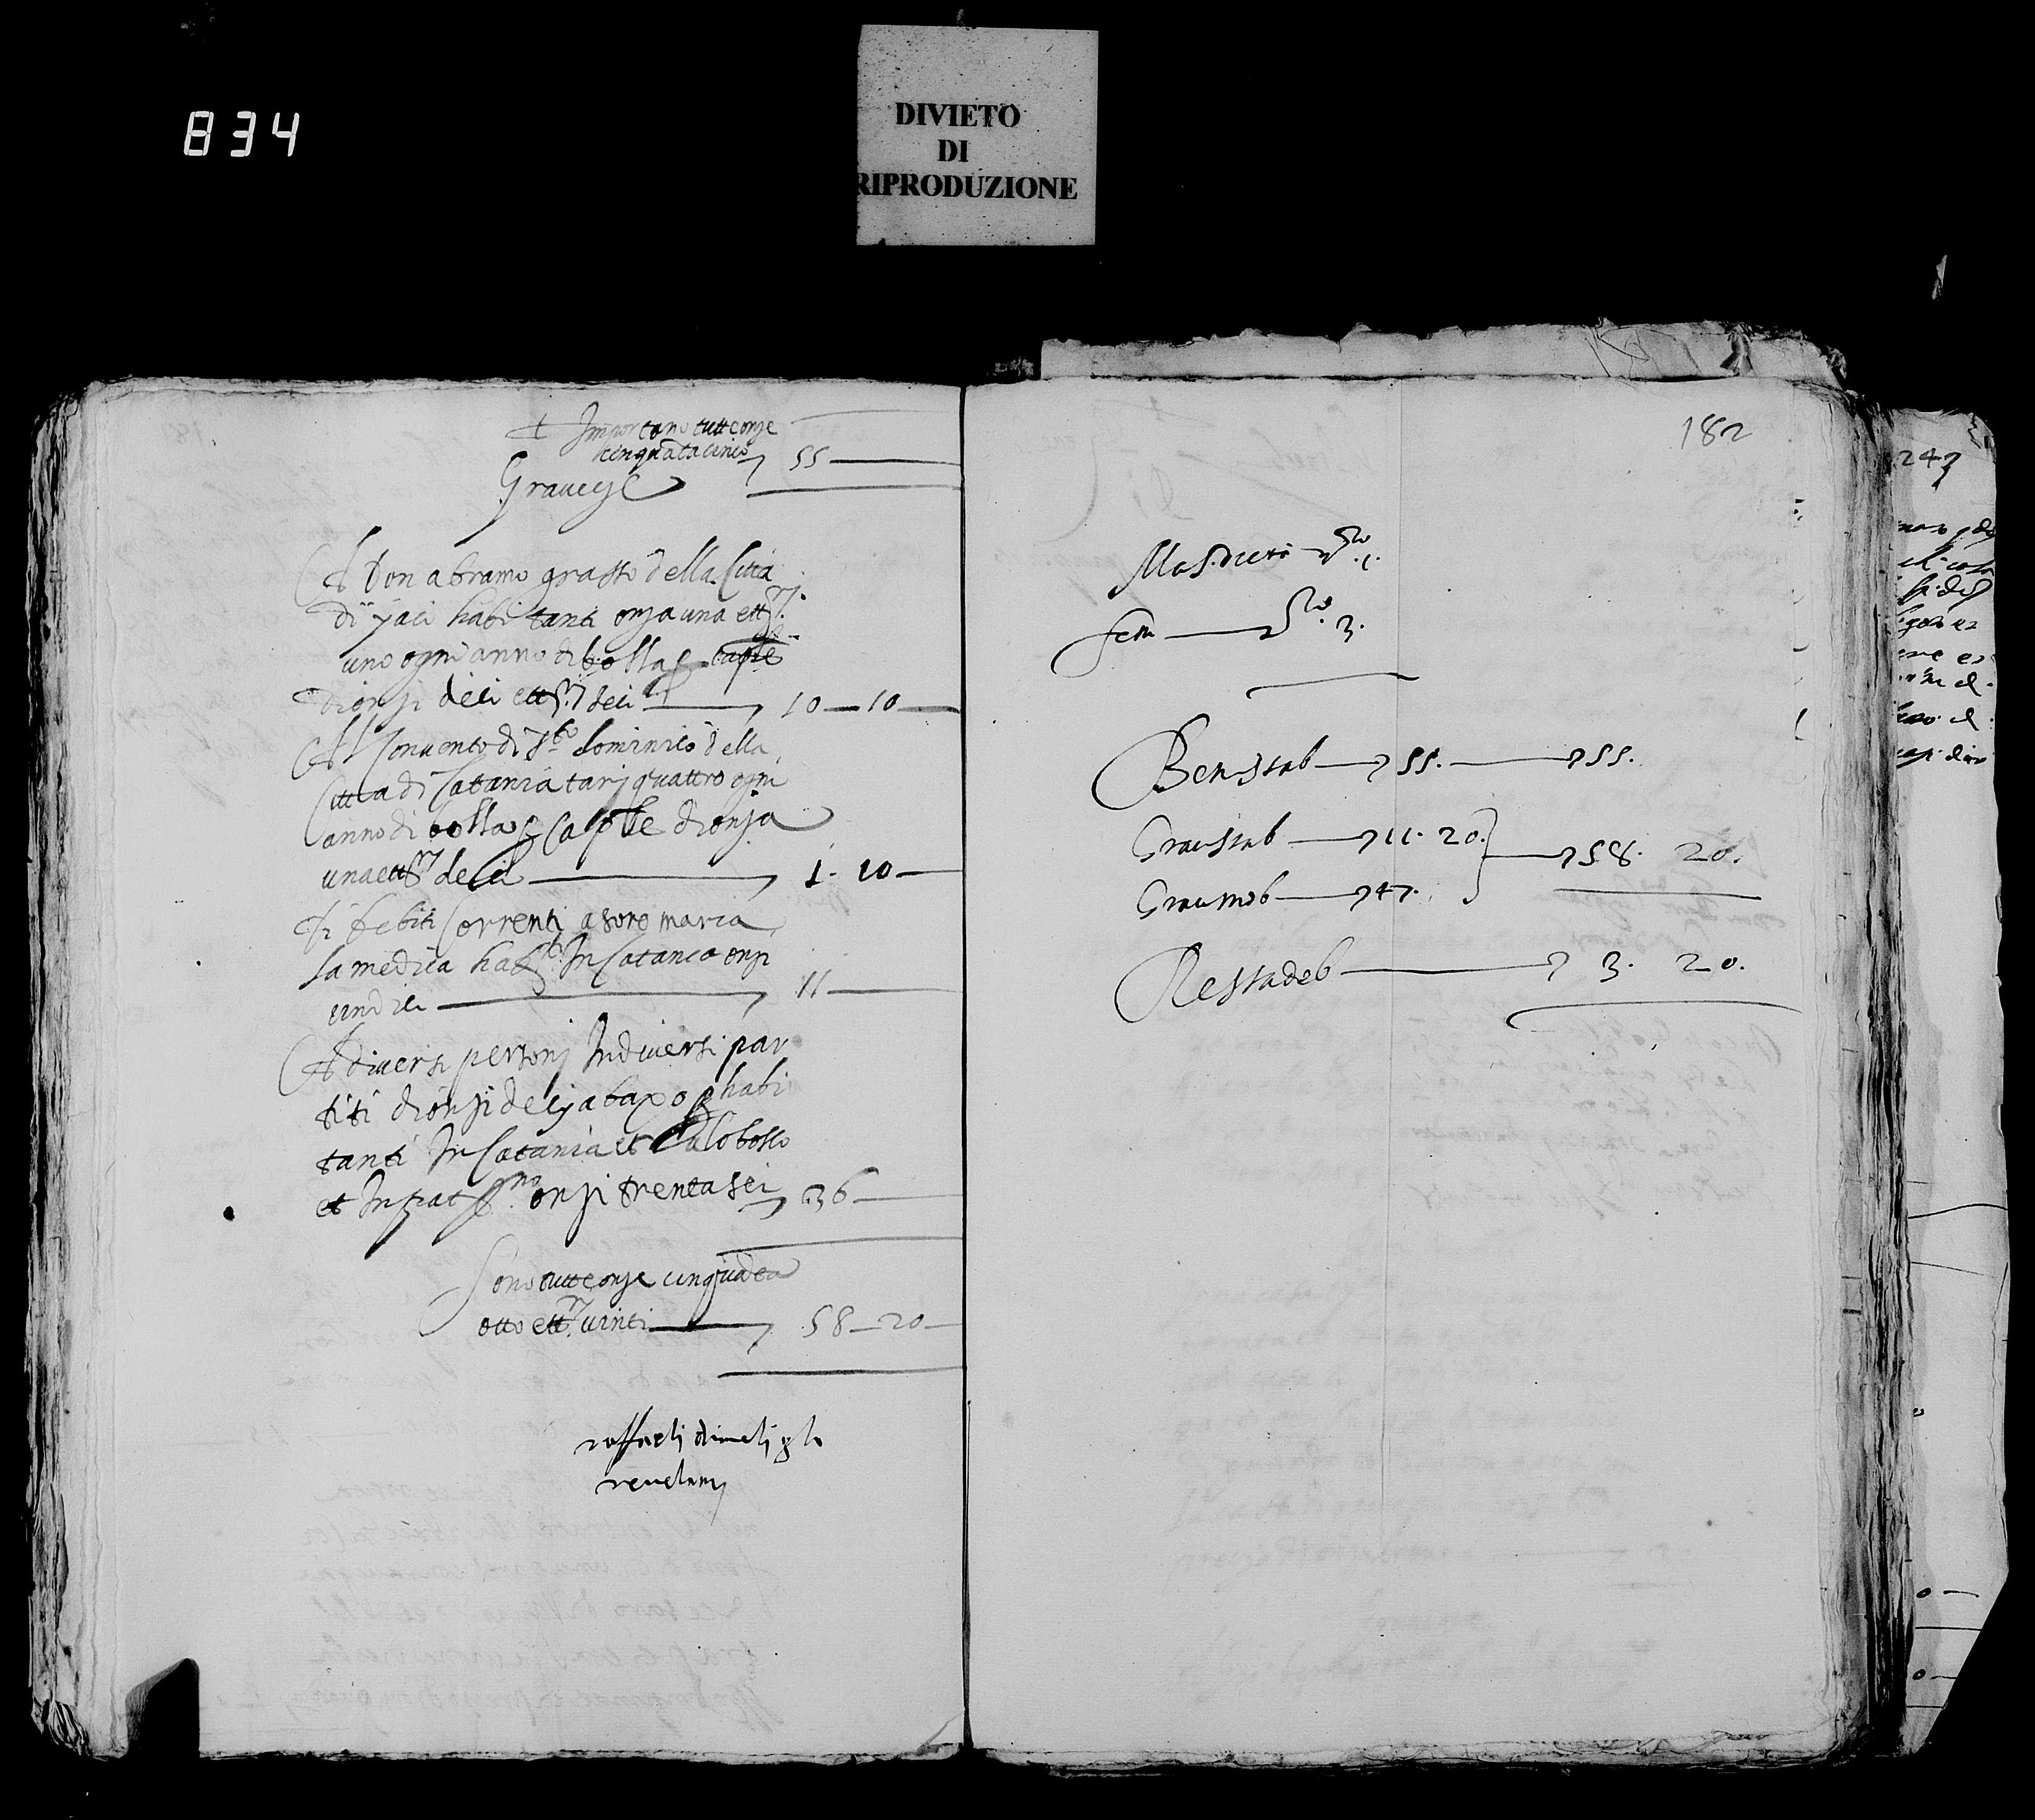 834
DIVIETO
DI
RIPRODUZIONE
Importano tutte onze
cinquātacinco 55
Graueze
A Don abramo grasso della Citta
di yaci habitanti onza una ett.rj
uno ogni anno di bolla caple
di onzi deci ett.rj deci 10 — 10
Al Conuento di s.to dominico della
Citta di Catania tarj quattro ogni
anno di bolla p caple di onza
una ett.rj deci 1 · 10
Di debiti Correnti a soro maria
la medica hab. In Catania onzi
undici 11
A diversi personj In diuersi par
titi di onzi deci a baxo habi
tanti In Catania et
et In onzi trentasei 36
Sono tutte onze cinquāta
otto ett.rj uinti 58 — 20
raffaeli
182
n.ro 1.
fem n.ro 3.
Ben stab 55. 55.
Grau stab 11. 20.
58. 20.
Grau mob 47.
Resta deb 3. 20.
247